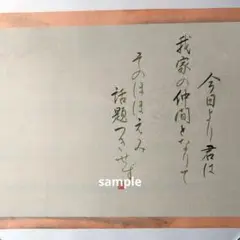 今日より君は
我家の仲間となりて
そのほほえみ
話題つきせず
sample